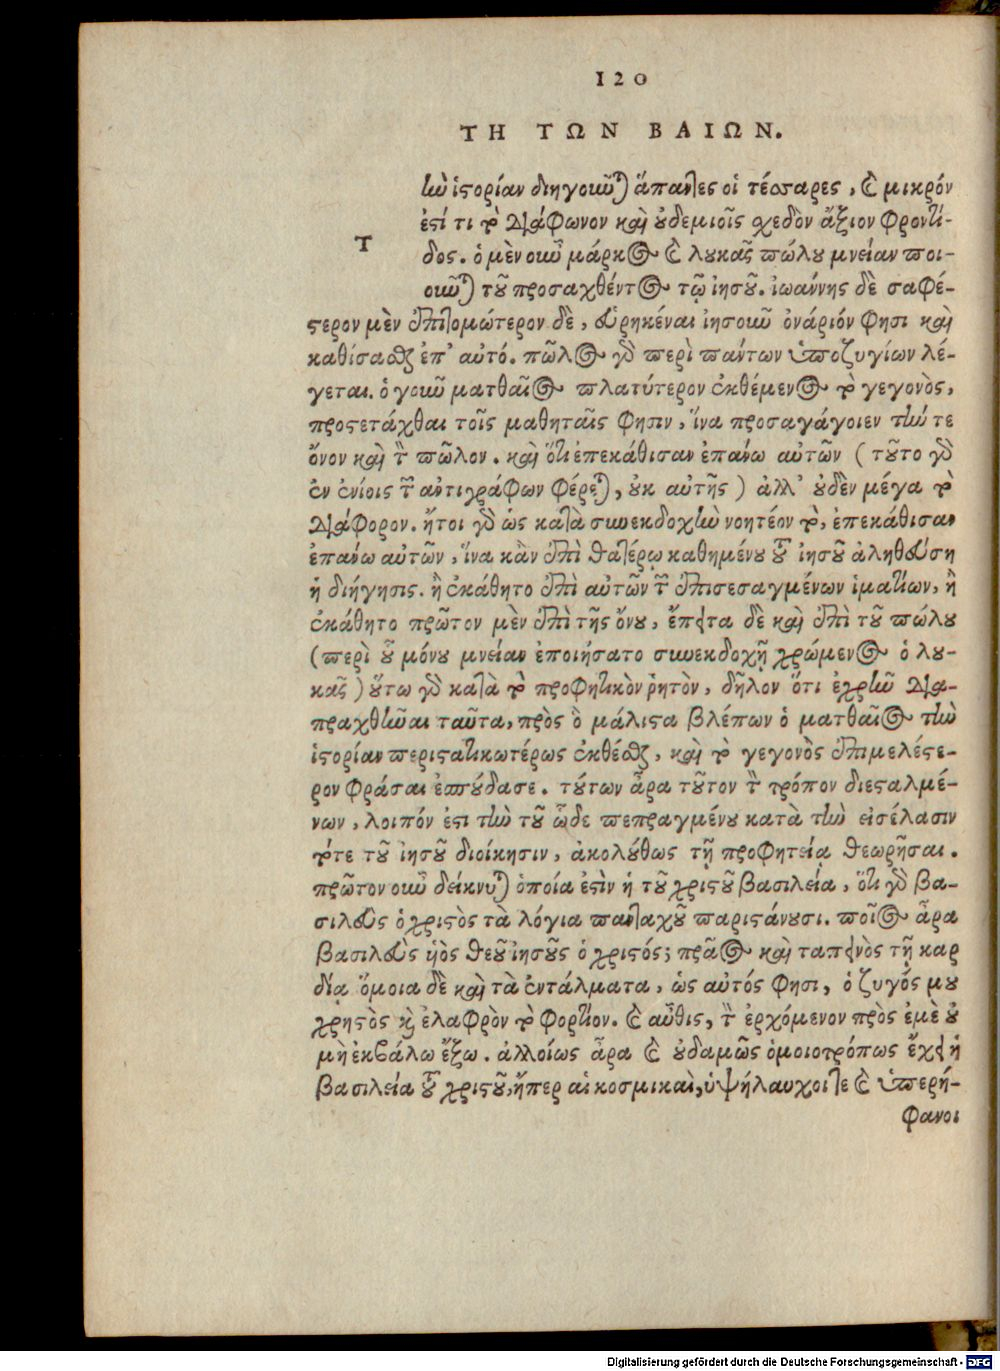 120
ΤΗ ΤΩΝ ΒΑΙΩΝ.
Τ
ὴν ἱστορίαν διηγοιῦ) ἅπαντες οἱ τέσσαρες, καὶ μικρόν
ἐστί τι τὸ διάφωνον καὶ οὐδεμιοῖς σχεδὸν ἄξιον φροντί-
δος. ὁ μὲν οιῦ μάρκος καὶ λουκᾶς πώλου μνείαν ποι-
οιῦ) τοῦ προσαχθέντος τῷ ἰησοῦ. ἰωάννης δὲ σαφέ-
στερον μὲν ἐπιτομώτερον δὲ, εὑρηκέναι ἰησοιῦ ὀνάριόν φησι καὶ
καθίσασθαι ἐπ' αὐτό. πῶλος γὸ περὶ πάντων ὑποζυγίων λέ-
γεται. ὁ γοιῦ ματθαῖος πλατύτερον ἐκθέμενος τὸ γεγονὸς,
προστετάχθαι τοῖς μαθηταῖς φησιν, ἵνα προσαγάγοιεν τήν τε
ὄνον καὶ τὸν πῶλον. καὶ ὅτι ἐπεκάθισαν ἐπάνω αὐτῶν (τοῦτο γὸ
ἐν ἐνίοις τῶν ἀντιγράφων φέρε), οὐκ αὐτῆς) ἀλλ' οὐδὲν μέγα τὸ
διάφορον. ἤτοι γὸ ὡς κατὰ συνεκδοχὴν νοητέον τὸ, ἐπεκάθισαν
ἐπάνω αὐτῶν, ἵνα κἂν ἐπὶ θατέρῳ καθημένου τοῦ ἰησοῦ ἀληθεύση
ἡ διήγησις. ἢ ἐκάθητο ἐπὶ αὐτῶν τῶν ἐπισεσαγμένων ἱματίων, ἢ
ἐκάθητο πρῶτον μὲν ἐπὶ τῆς ὄνου, ἔπειτα δὲ καὶ ἐπὶ τοῦ πώλου
(περὶ οὗ μόνου μνείαν ἐποιήσατο συνεκδοχῇ χρώμενος ὁ λου-
κᾶς) οὕτω γὸ κατὰ τὸ προφητικὸν ῥητὸν, δῆλον ὅτι ἐχρῆν δια-
πραχθῆναι ταῦτα, πρὸς ὃ μάλιστα βλέπων ὁ ματθαῖος τὴν
ἱστορίαν περιστατικωτέρως ἐκθέσθαι, καὶ τὸ γεγονὸς ἐπιμελέστε-
ρον φράσαι ἐσπούδασε. τούτων ἆρα τοῦτον τὸν τρόπον διεσταλμέ-
νων, λοιπόν ἐστι τὴν τοῦ ὧδε πεπραγμένου κατὰ τὴν εἰσέλασιν
τότε τοῦ ἰησοῦ διοίκησιν, ἀκολούθως τῇ προφητείᾳ θεωρῆσαι.
πρῶτον οιῦ δείκνυ) ὁποία ἐστὶν ἡ τοῦ χριστοῦ βασιλεία, ὅτι γὸ βα-
σιλεὺς ὁ χριστὸς τὰ λόγια πανταχοῦ παριστάνουσι. ποῖος ἆρα
βασιλεὺς ὑὸς θεοῦ ἰησοῦς ὁ χριστός; πρᾶος καὶ ταπεινὸς τῇ καρ
δίᾳ ὅμοια δὲ καὶ τὰ ἐντάλματα, ὡς αὐτός φησι, ὁ ζυγός μου
χρηστὸς καὶ ἐλαφρὸν τὸ φορτίον. καὶ αὖθις, τὸν ἐρχόμενον πρὸς ἐμὲ οὐ
μὴ ἐκβάλω ἔξω. ἀλλοίως ἆρα καὶ οὐδαμῶς ὁμοιοτρόπως ἔχει ἡ
βασιλεία τοῦ χριστοῦ, ἤπερ αἱ κοσμικαὶ, ὑψήλαυχοι τε καὶ ὑπερή-
φανοι
Digitalisierung gefördert durch die Deutsche Forschungsgemeinschaft - DFG